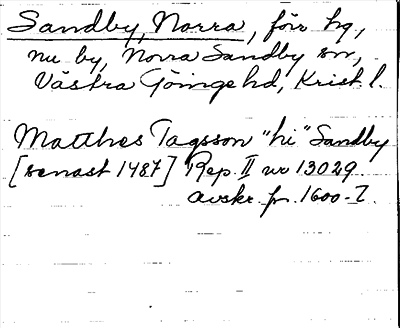 Sandby, Norra, förr hg,
nu by, Norra Sandby sn,
Västra Göinge hd, Krist. l.
Matthes Tagsson "hi" Sandby
[senast 1487] Rep. II nr 13029.
avskr. fr. 1600-t.